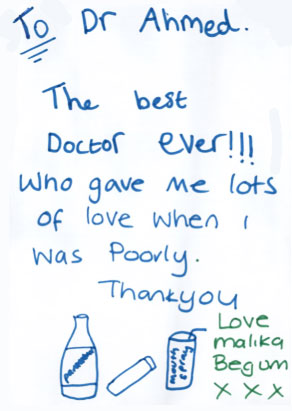 To Dr Ahmed.
The best
Doctor ever!!!
Who gave me lots
of love when i
was Poorly.
Thankyou
mouth spray
Love
malika
Begum
x x x